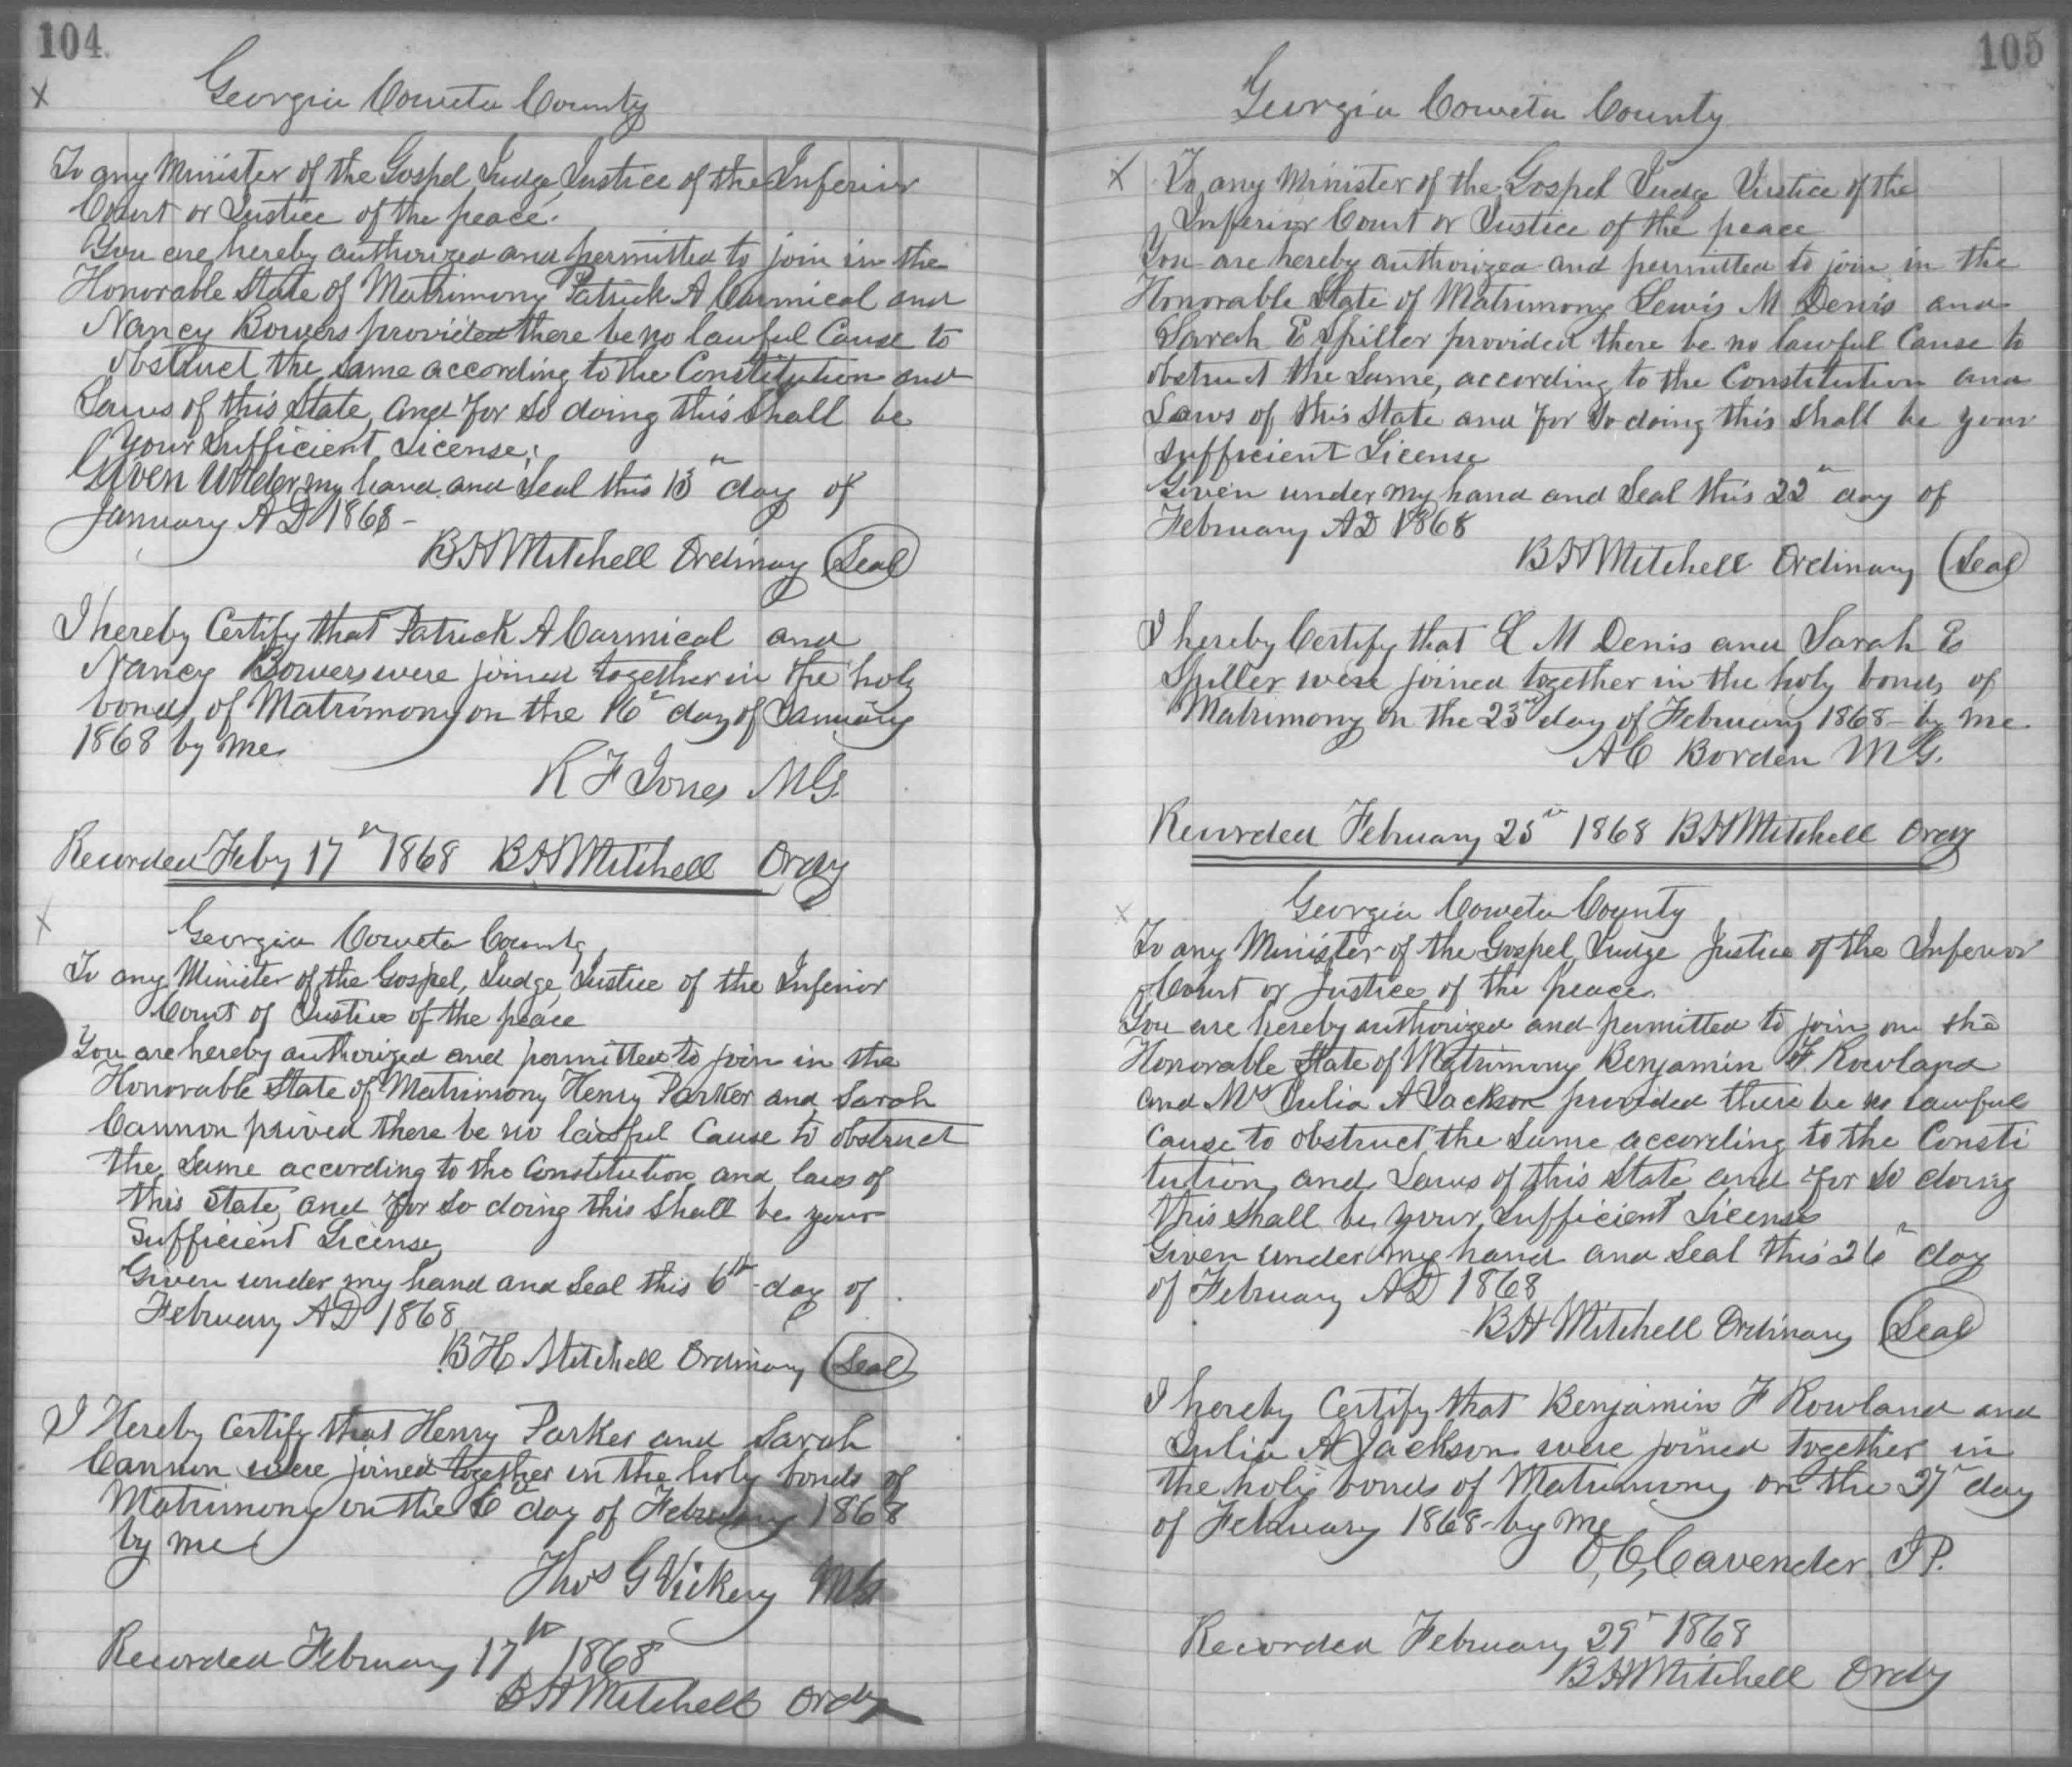 104
x
Georgia Coweta County
To any Minister of the Gospel Judge Justice of the Inferior
Court or Justice of the peace.
You are hereby authorized and permitted to join in the
Honorable State of Matrimony Patrick A Carmical and
Nancy Bowers provided there be no lawful Cause to
obstruct the same according to the Constitution and
Laws of this State, and for so doing this shall be
your Sufficient License,
Given under my hand and Seal this 13th day of
January AD 1868 -
BH Mitchell Ordinary (Seal)
I hereby Certify that Patrick A Carmical and
Nancy Bowers were joined together in the holy
bonds of Matrimony on the 16th day of January
1868 by me
R F Jones MG.
Recorded Feby 17th 1868 BH Mitchell Ordy
x
Georgia Coweta County
To any Minister of the Gospel, Judge Justice of the Inferior
Court of Justice of the peace
You are hereby authorized and permitted to join in the
Honorable State of Matrimony Henry Parker and Sarah
Cannon prived there be no lawful Cause to obstruct
the Same according to the Constitution and laws of
this State, and for so doing this shall be your
Sufficient License
Given under my hand and Seal this 6th day of
February AD 1868
BH Mitchell Ordinary (Seal)
I Hereby Certify that Henry Parker and Sarah
Cannon were joined together in the holy bonds of
Matrimony on the 6th day of February 1868
by me
Thos G Vickery MG
Recorded February 17th 1868
BH Mitchell Ordy
105
Georgia Coweta County
x
To any Minister of the Gospel Judge Justice of the
Inferior Court or Justice of the peace
You are hereby authorized and permitted to join in the
Honorable State of Matrimony Lewis M Denis and
Sarah E Spiller provided there be no lawful Cause to
obstruct the Same, according to the Constitution and
Laws of this State and for so doing this shall be your
sufficient License
Given under my hand and Seal this 22nd day of
February AD 1868
BH Mitchell Ordinary (Seal)
I hereby Certify that L M Denis and Sarah E
Spiller were joined together in the holy bonds of
Matrimony on the 23rd day of February 1868 - by me
A C Borden MG.
Recorded February 25th 1868 BH Mitchell Ordy
x
Georgia Coweta County
To any Minister of the Gospel Judge Justice of the Inferior
Court or Justice of the peace.
You are hereby authorized and permitted to join on the
Honorable State of Matrimony Benjamin F. Rowland
and Mrs Julia A Jackson provided there be no lawful
Cause to obstruct the Same according to the Consti
tution, and Laws of this State and for so doing
this shall be your sufficient License
Given under my hand and Seal this 26th day
of February AD 1868
BH Mitchell Ordinary (Seal)
I hereby Certify that Benjamin F Rowland and
Julia A Jackson were joined together in
the holy bonds of Matrimony on the 27th day
of February 1868 - by me
O, C, Cavender JP.
Recorded February 29th 1868
BH Mitchell Ordy